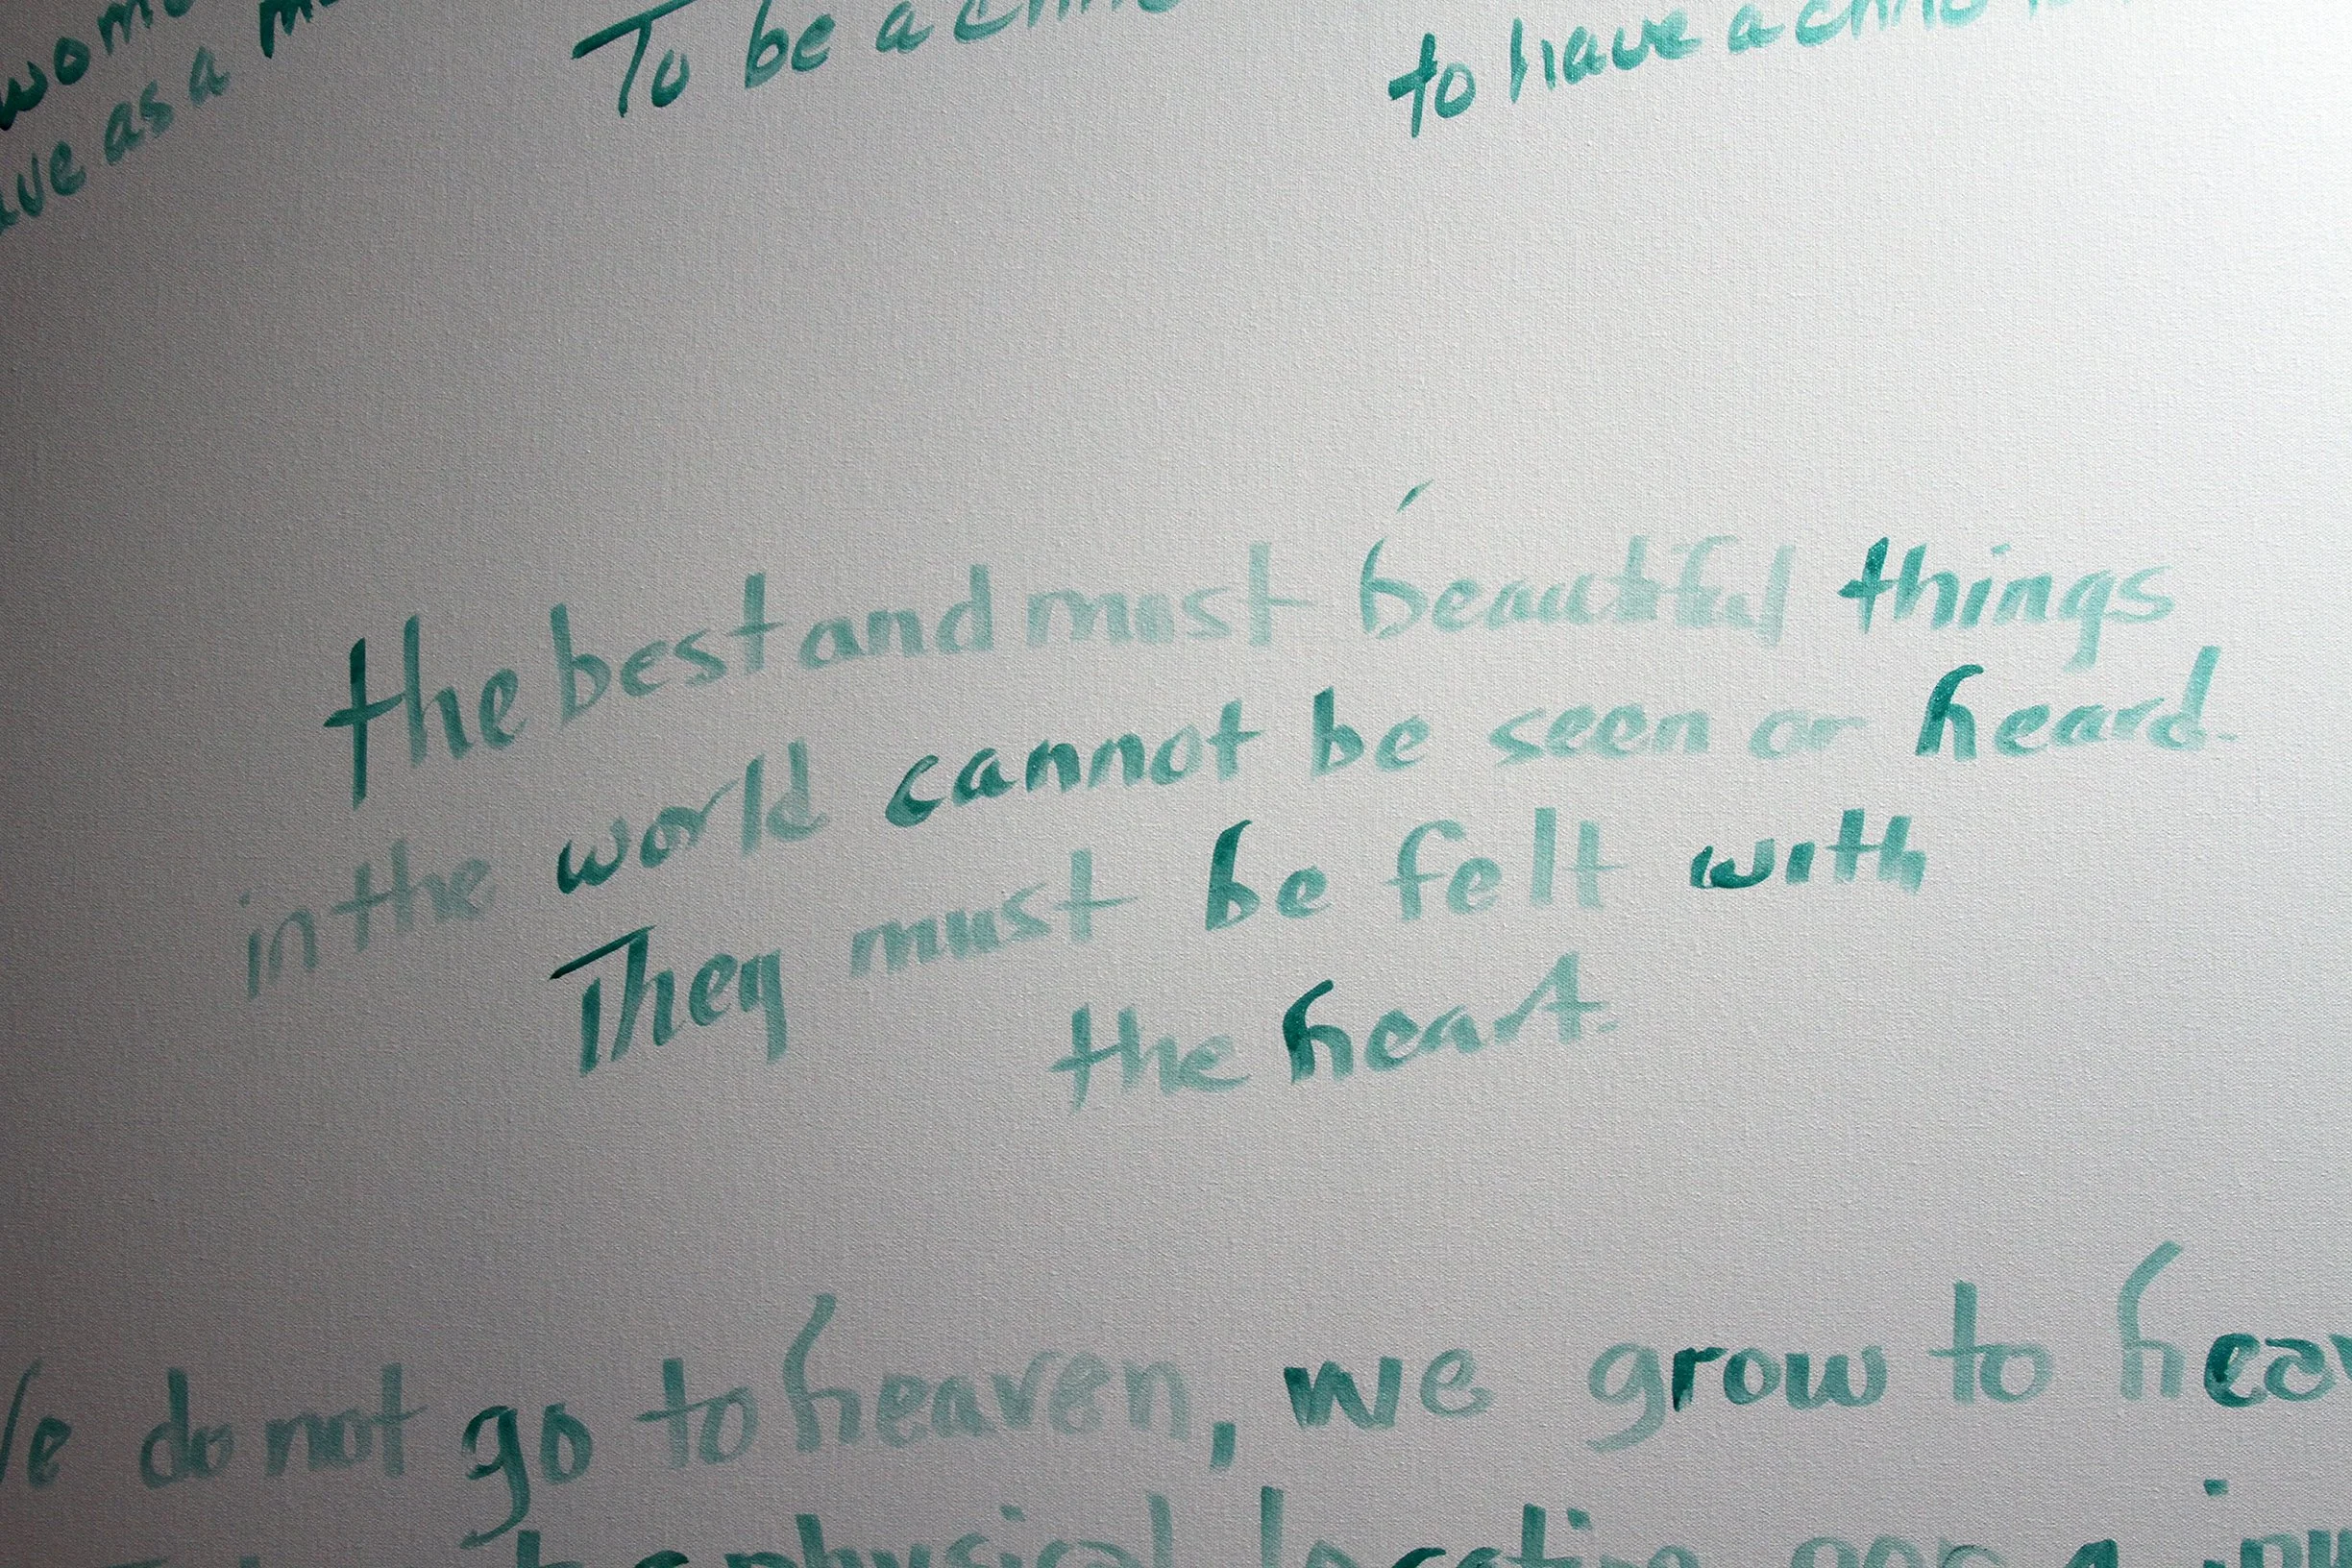 as a
To be a
to have a
the best and most beautiful things
in the world cannot be seen or heard.
They must be felt with
the heart.
do not go to heaven, we grow to
physical